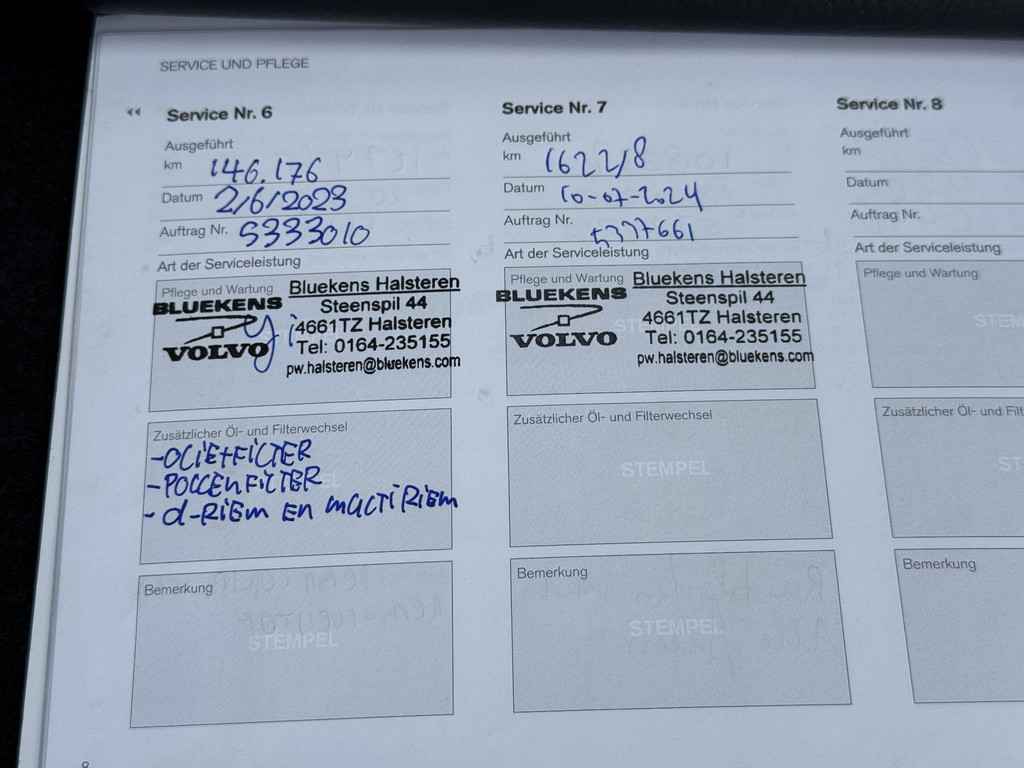 SERVICE UND PFLEGE
Service Nr. 6
Ausgeführt
km 146.176
Datum 2/6/2023
Auftrag Nr. S333010
Art der Serviceleistung
Pflege und Wartung
BLUEKENS
VOLVO
Bluekens Halsteren
Steenspil 44
4661TZ Halsteren
Tel: 0164-235155
pw.halsteren@bluekens.com
Zusätzlicher Öl- und Filterwechsel
-OLIE+FILTER
-POLLENFILTER
- d-RIEM EN MULTIRIEM
Bemerkung
STEMPEL
Service Nr. 7
Ausgeführt
km 162218
Datum 10-07-2024
Auftrag Nr. 5337661
Art der Serviceleistung
Pflege und Wartung
BLUEKENS
VOLVO
Bluekens Halsteren
Steenspil 44
4661TZ Halsteren
Tel: 0164-235155
pw.halsteren@bluekens.com
Zusätzlicher Öl- und Filterwechsel
STEMPEL
Bemerkung
STEMPEL
Service Nr. 8
Ausgeführt
km
Datum
Auftrag Nr.
Art der Serviceleistung
Pflege und Wartung
STEM
Zusätzlicher Öl- und Filt
ST
Bemerkung